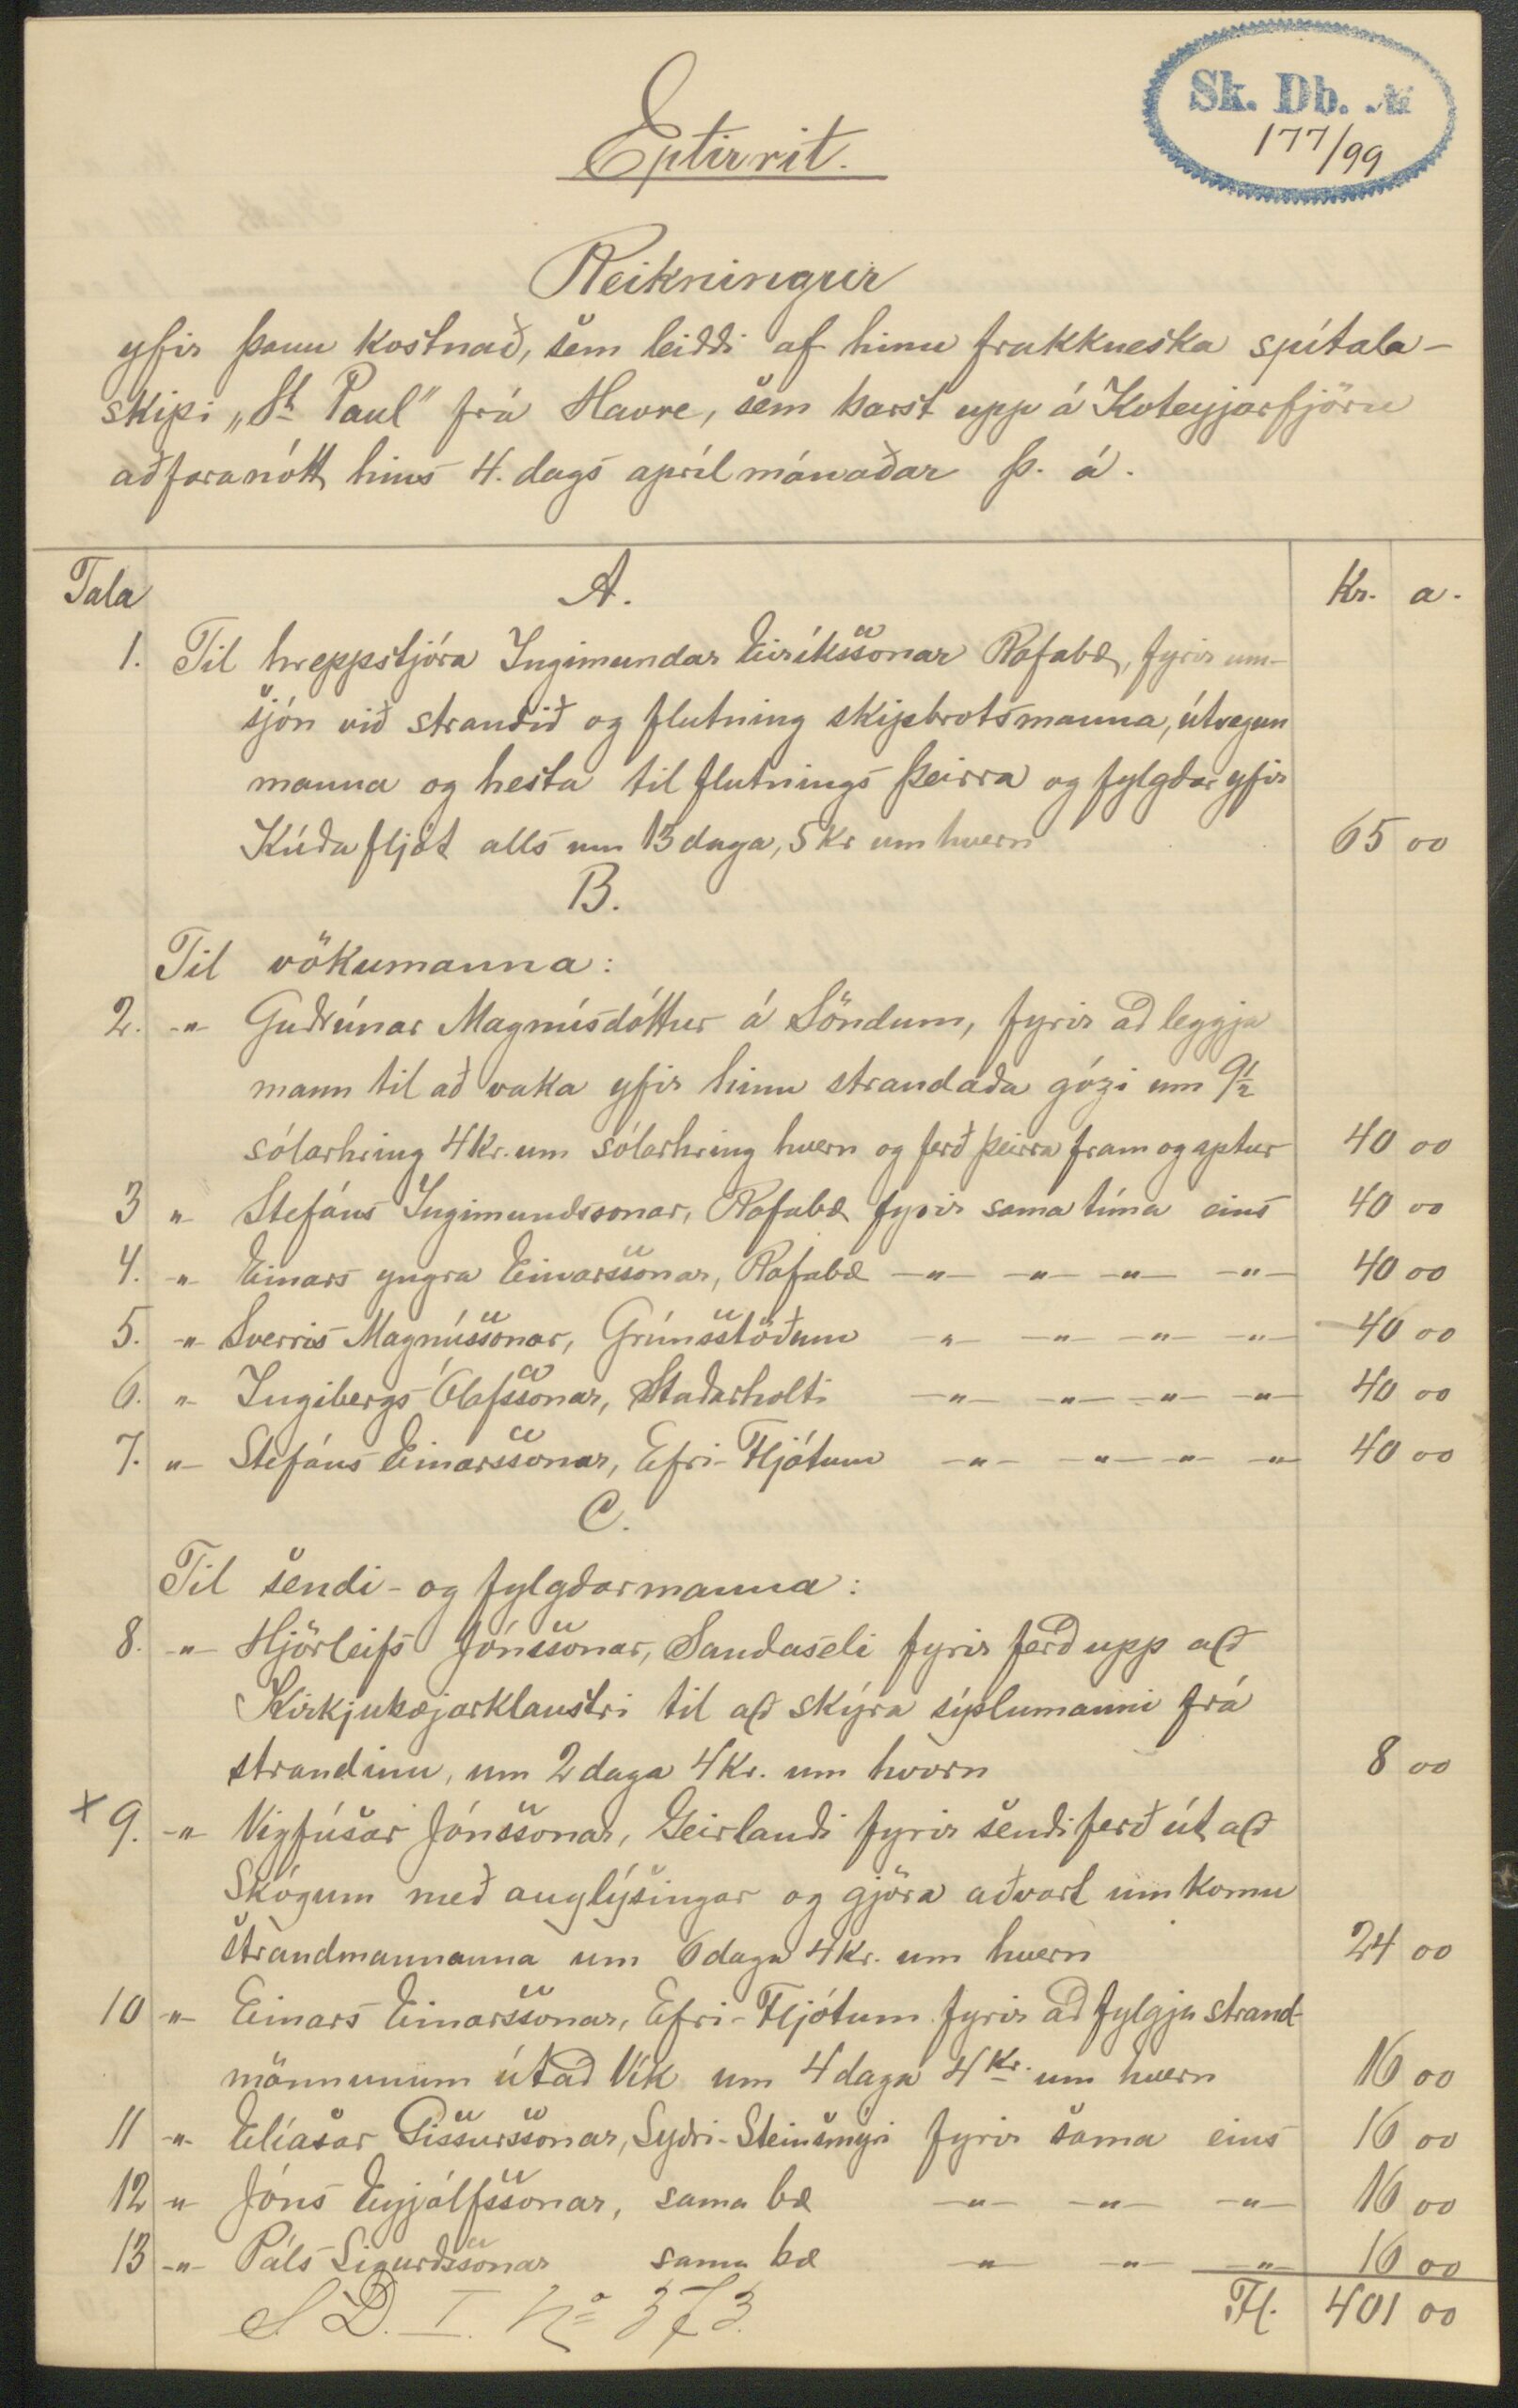 Sk. Db. №
177/99
Eptirrit.
Reikningur
yfir þann kostnað, sem leiddi af hinu frakkneska spítala-
skipi „St Paul" frá Havre, sem barst upp á Koteyjarfjöru
aðfaranótt hins 4. dags aprílmánaðar þ. á.
Tala A. Kr. a.
1. Til hreppstjóra Ingimundar Eiríkssonar Rofabæ, fyrir um-
sjón við strandið og flutning skipbrotsmanna, útvegun
manna og hesta til flutnings þeirra og fylgdar yfir
Kúðafljót alls um 13 daga, 5 Kr um hvern 65 00
B.
Til vökumanna:
2. -"- Guðrúnar Magnúsdóttur á Söndum, fyrir að leggja
mann til að vaka yfir hinu strandaða gózi um 9½
sólarhring 4 Kr. um sólarhring hvern og ferð þeirra fram og aptur 40 00
3 " Stefáns Ingimundssonar, Rofabæ fyrir sama tíma eins 40 00
4. -"- Einars yngra Einarssonar, Rofabæ -"- -"- -"- -"- 40 00
5. -"- Sverris Magnússonar, Grímsstöðum -"- -"- -"- -"- 40 00
6. -"- Ingibergs Ólafssonar, Staðarholti -"- -"- -"- -"- 40 00
7. -"- Stefáns Einarssonar, Efri-Fljótum -"- -"- -"- -"- 40 00
C.
Til sendi- og fylgdarmanna:
8. -"- Hjörleifs Jónssonar, Sandaseli fyrir ferð upp að
Kirkjubæjarklaustri til að skýra sýslumanni frá
strandinu, um 2 daga 4 Kr. um hvorn 8 00
x 9. -"- Vigfúsar Jónssonar, Geirlandi fyrir sendiferð út að
Skógum með auglýsingar og gjöra aðvart um komu
strandmannanna um 6 daga 4 Kr. um hvern 24 00
10 -"- Einars Einarssonar, Efri-Fljótum fyrir að fylgja strand-
mönnunum út að Vík um 4 daga 4 Kr. um hvern 16 00
11 -"- Elíasar Gissurssonar, Syðri-Steinsmýri fyrir sama eins 16 00
12 -"- Jóns Eyjólfssonar, sama bæ -"- -"- -"- 16 00
13 -"- Páls Sigurðssonar sama bæ -"- -"- -"- 16 00
S. D. I. No 373. Fl. 401 00